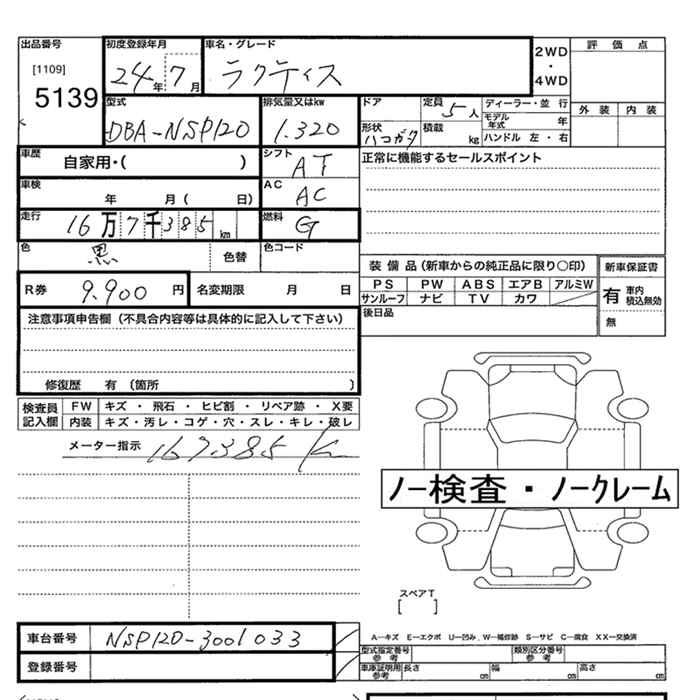 出品番号
[1109]
5139
初度登録年月
24年7月
車名・グレード
ラクティス
2WD
・
4WD
評価点
外装 内装
型式
DBA-NSP120
排気量又はkw
1.320
ドア
定員 5人
形状 ハコガタ
積載 kg
ディーラー・並 行
モデル年式 年
ハンドル 左・右
車歴 自家用・( )
シフト AT
正常に機能するセールスポイント
車検 年 月( 日)
AC AC
走行 16万7千385km
燃料 G
色 黒 色替
色コード
装備品(新車からの純正品に限り〇印)
PS PW ABS エアB アルミW
サンルーフ ナビ TV カワ
新車保証書
有 車内積込無効
無
後日品
R券 9.900円
名変期限 月 日
注意事項申告欄(不具合内容等は具体的に記入して下さい)
修復歴 有〔箇所 〕
検査員記入欄
FW キズ・飛石・ヒビ割・リペア跡・X要
内装 キズ・汚レ・コゲ・穴・スレ・キレ・破レ
メーター指示 167385K
ノー検査・ノークレーム
スペアT
[ ]
車台番号 NSP120-3001033
登録番号
A―キズ E―エクボ U―凹み W―補修跡 S―サビ C―腐食 XX―交換済
型式指定番号 参考
類別区分番号 参考
車庫証明用 参考 長さ cm 幅 cm 高さ cm